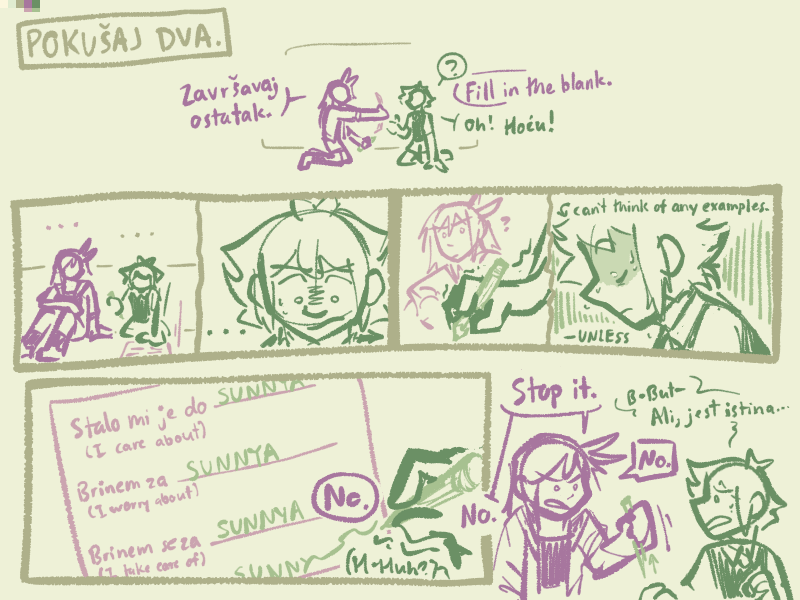 POKUŠAJ DVA.
Završavaj
ostatak.
?
Fill in the blank.
Oh! Hoću!
...
...
...
?
I can't think of any examples.
—UNLESS
Stalo mi je do SUNNYA
(I care about)
Brinem za SUNNYA
(I worry about)
Brinem se za SUNNYA
(I take care of)
SUNNY
No.
(H-Huh?)
Stop it.
No.
B-But-
Ali, jest istina...
No.